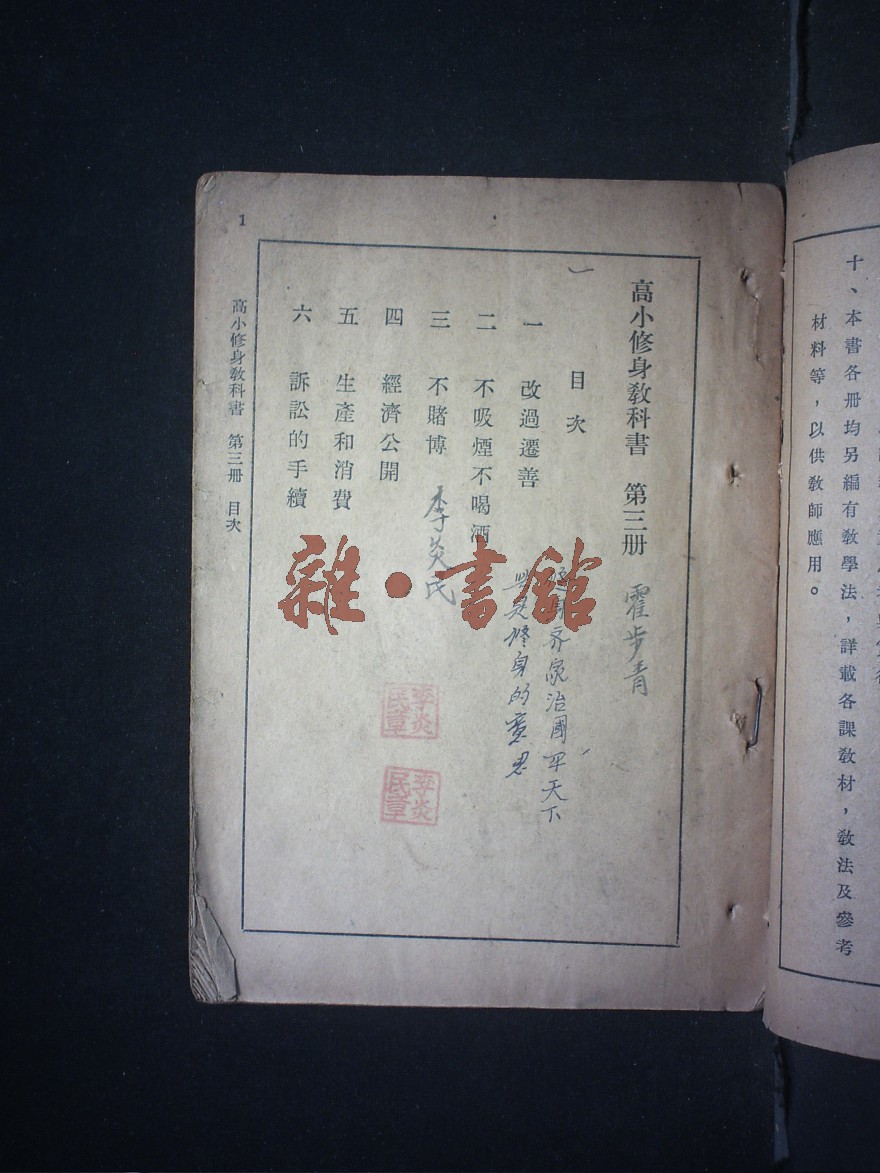 十、本書各册均另編有教學法，詳載各課教材，教法及參考
材料等，以供教師應用。
高小修身教科書 第三册 霍步青
目次
修身齐家治國平天下
一 改過遷善
此是修身的意思
二 不吸煙不喝酒
三 不賭博
李炎氏
四 經濟公開
五 生產和消費
六 訴訟的手續
李炎民章
李炎民章
高小修身教科書 第三册 目次
1
雜·書館